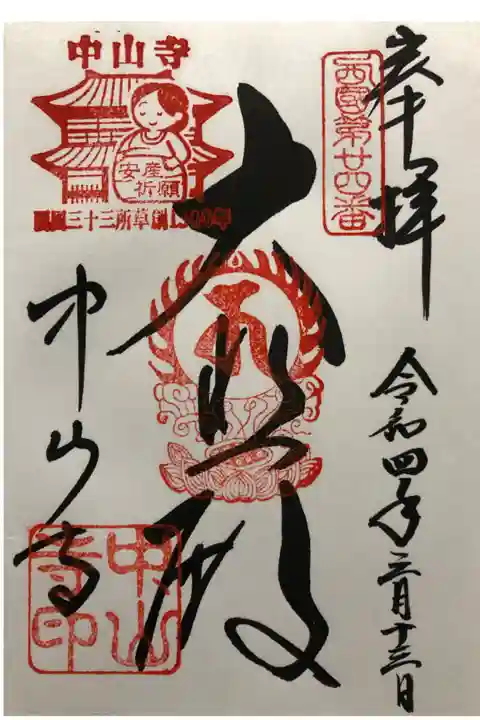 奉拝
西國第廿四番
令和四年三月十三日
大悲殿
中山寺
安産
祈願
西国三十三所草創1300年
中山寺
中山
寺印